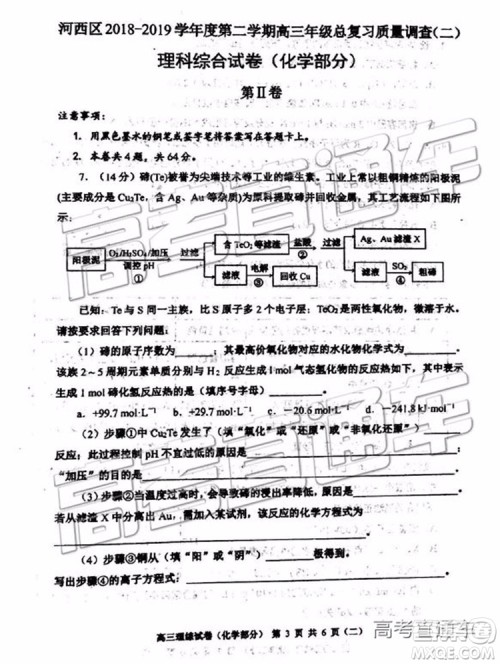 河西区 2018-2019 学年度第二学期高三年级总复习质量调查(二)
理科综合试卷（化学部分）
第Ⅱ卷
注意事项：
1．用黑色墨水的钢笔或签字笔将答案写在答题卡上。
2．本卷共 4 题，共 64 分。
7．(14 分) 碲(Te)被誉为尖端技术等工业的维生素。工业上常以粗铜精炼的阳极泥
(主要成分是 Cu₂Te，含 Ag、Au 等杂质)为原料提取碲并回收金属，其工艺流程如下图所
示：
阳极泥 O₂/H₂SO₄/加压 调控 pH ① 过滤 含 TeO₂ 等滤渣 盐酸 ② 过滤 Ag、Au 滤渣 X
滤液 电解 ③ 回收 Cu 滤液 SO₂ ④ 粗碲
已知：Te 与 S 同一主族，比 S 原子多 2 个电子层；TeO₂是两性氧化物，微溶于水。
请按要求回答下列问题：
（1）碲的原子序数为；其最高价氧化物对应的水化物化学式为
该族 2～5 周期元素单质分别与 H₂ 反应生成 1mol 气态氢化物的反应热如下，其中表示
生成 1mol 碲化氢反应热的是（填序号字母）
a．+99.7 mol·L⁻¹ b．+29.7 mol·L⁻¹ c．−20.6 mol·L⁻¹ d．−241.8 kJ·mol⁻¹
（2）步骤①中 Cu₂Te 发生了（填“氧化”或“还原”或“非氧化还原”）
反应；此过程控制 pH 不宜过低的原因是
“加压”的目的是
（3）步骤②当温度过高时，会导致碲的浸出率降低，原因是
若从滤渣 X 中分离出 Au，需加入某试剂，该反应的化学方程式为
（4）步骤③铜从（填“阳”或“阴”）极得到。
写出步骤④的离子方程式：
高三理综试卷（化学部分）第 3 页 共 6 页（二）
高考直通车
高考直通车